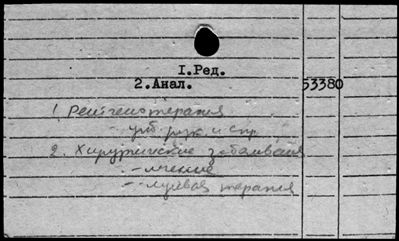 I.Ред.
2.Анал. 53380
1. Рентгенотерапия
- учб. рук. и спр.
2. Хирургические заболевания
- лечение
- лучевая терапия